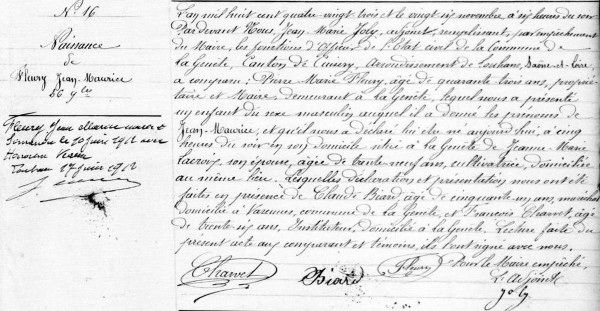 N° 16
Naissance
de
Fleury Jean-Maurice
Fleury Jean Maurice marié à
le 10 juin 1912 avec
Louhans 17 juin 1912
L'an mil huit cent quatre-vingt trois et le vingt six novembre à six heures du soir
Pardevant Nous, Jean-Marie Joly, adjoint, remplissant, par empêchement
du Maire, les fonctions d'Officier de l'Etat civil de la Commune de
La Genête, Canton de Cuisery, Arrondissement de Louhans, Saône-et-Loire,
a comparu : Pierre Marie Fleury, âgé de quarante trois ans, proprié-
taire et Maire, demeurant à La Genête, lequel nous a présenté
un enfant du sexe masculin auquel il a donné les prénoms de
Jean-Maurice, et qu'il nous a déclaré lui être né aujourd'hui, à cinq
heures du soir en son domicile situé à la Genête de Jeanne Marie
Lacroix, son épouse, âgée de trente neuf ans, cultivatrice, domiciliée
au même lieu. Lesquelles déclaration et présentation nous ont été
faites en présence de Claude Biard, âgé de cinquante un ans, maréchal
domicilié à Varennes, commune de La Genête, et François Charvet, âgé
de trente six ans, Instituteur, domicilié à la Genête. Lecture faite du
présent acte aux comparant et témoins, ils l'ont signé avec nous.
Charvet Biard Fleury Pour le Maire empêché,
L'Adjoint
Joly